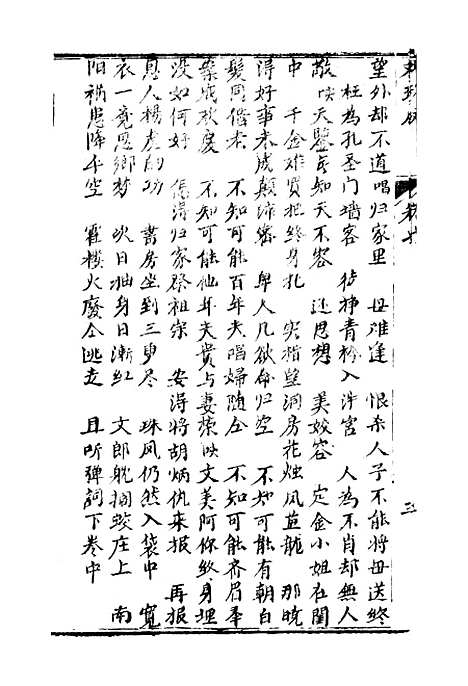 望外却不道唱归家里 母难逢 恨杀人子不能将母送终
枉为孔圣门墙客 青衿入泮宫 人为不肖却无人
天鉴 知天不容 还思想 美姣容 定金小姐在闺
中 千金难买把终身托 实指望洞房花烛凤 龙 那晓
得好事未成颠 卑人几欲命归空 不知可能有朝白
发同偕老 不知可能百年夫唱妇随全 不知可能齐眉举
案成秋度 不知可能仙年夫贵与妻荣 文美阿你终身埋
没如何好 怎得归家祭祖宗 安得将胡炳仇来报 再报
恩人杨虎的功 书房坐到三更尽 珠凤仍然入袋中 宽
衣一觉思乡梦 次日抽身日渐红 文郎耽搁 庄上 南
阳祸患降半空 霍楼火废全逃走 且听弹词下卷中
三